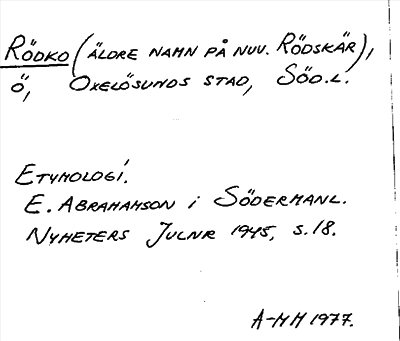 RÖDKO (ÄLDRE NAMN PÅ NUV. RÖDSKÄR),
Ö, OXELÖSUNDS STAD, SÖD.L.
ETYMOLOGI.
E. ABRAHAMSON i SÖDERMANL.
NYHETERS JULNR 1945, S.18.
A-MH 1977.